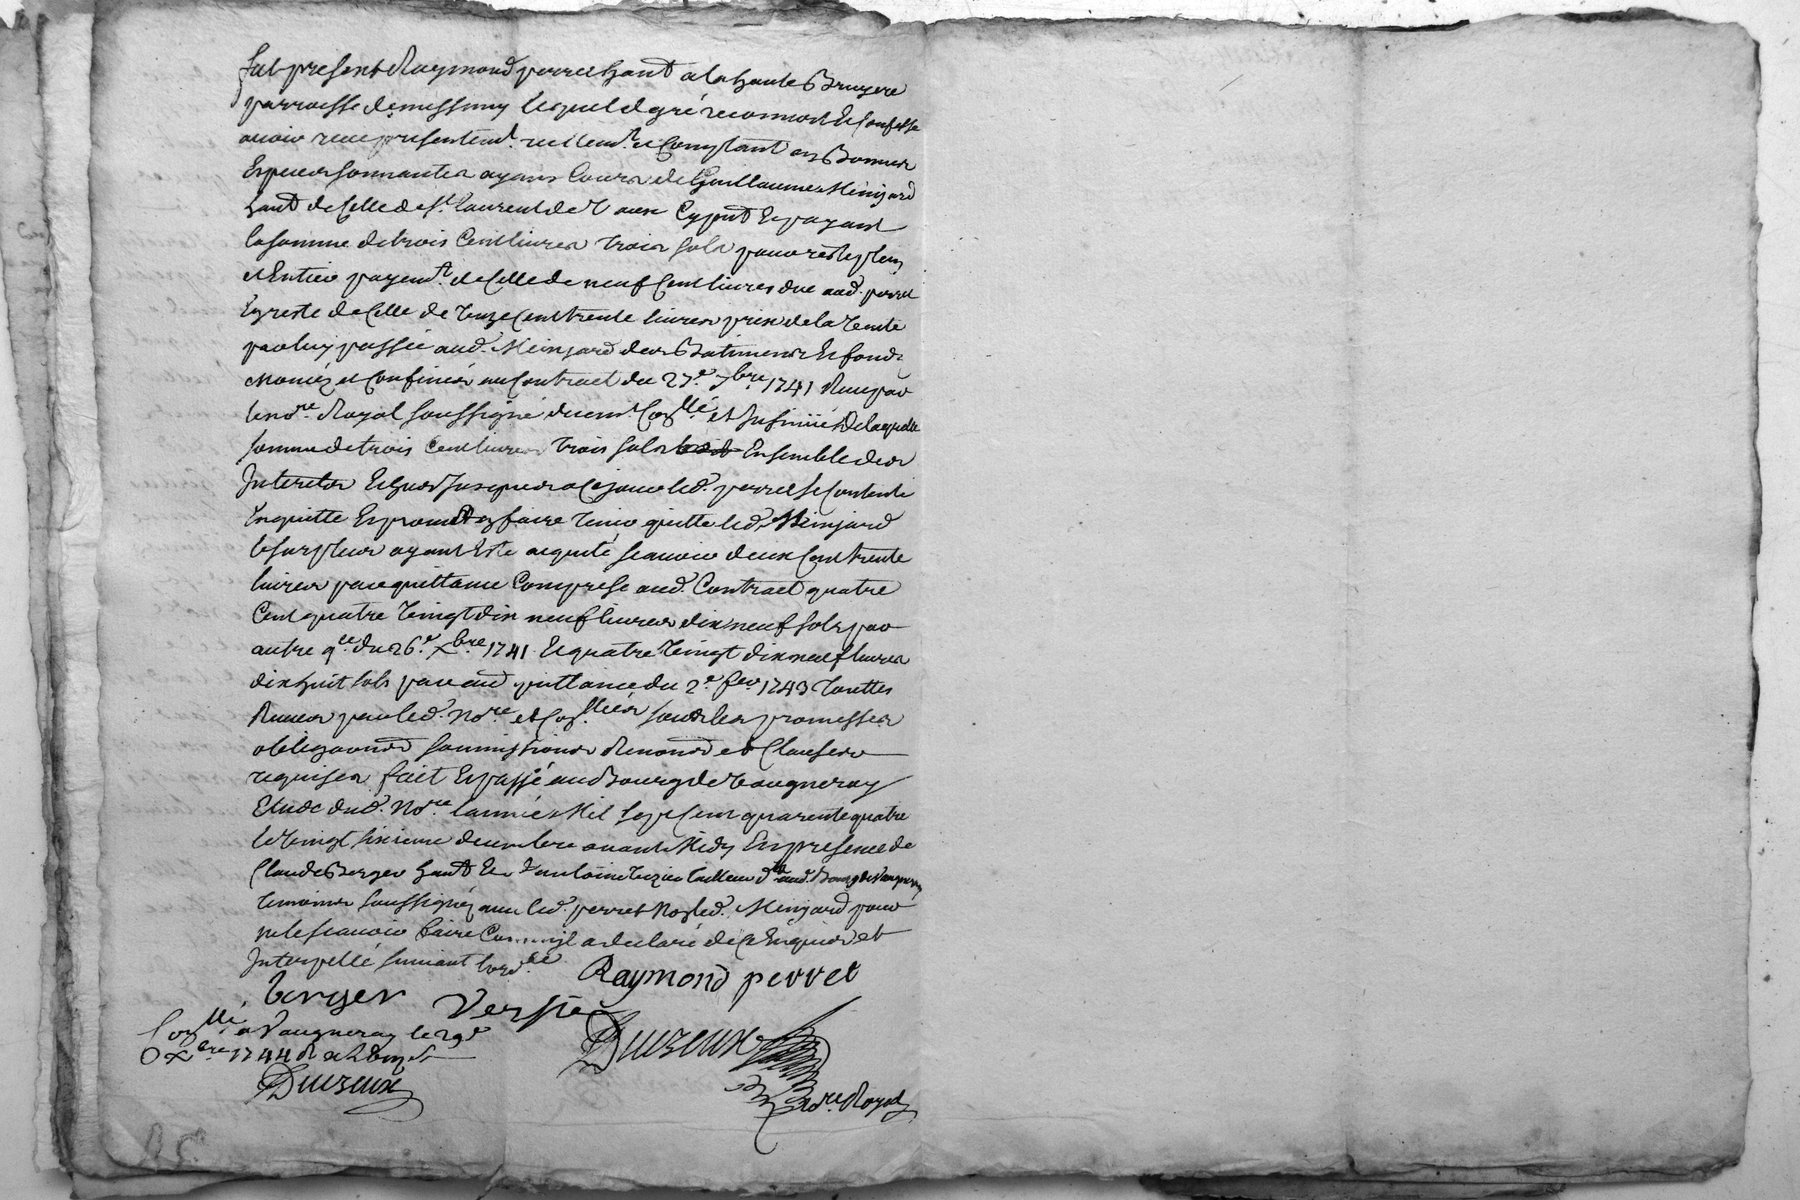 fut present Raymond perret habt a la haute Bruyere
parroisse de messimy lequel de gré reconnoit et confesse
avoir receu presentemt. reellemt. et comptant en Bonnes
Especes sonnantes ayans cours de Guillaume Meinjard
habt de Celle de St. laurent de Vaux cy pnt Et payant
la somme de trois Cent livres trois sols pour reste plein
et Entier payemt. de Celle de neuf Cent livres due aud. perret
Et reste de Celle de Unze cent trente livres prix de la Vente
par luy passée aud. Meinjard des Batiments Et fonds
només et Confinés au Contract du 27e. 7bre 1741 Receu par
le nore. Royal soussigné duemt. Conllé. et Insinué de laquelle
somme de trois Cent livres trois sols Ensemble des
Interetes Echus Jusques a Ce jour led. perret se Contente
En quitte Et promet En faire tenir quitte led. Meinjard
le surplus ayant Esté acquité scavoir deux Cent trente
livres par quittance Comprise aud. Contract quatre
Cent quatre Vingt dix neuf livres dix neuf sols par
autre qce. du 26e. xbre 1741 Et quatre Vingt dix neuf livres
dix huit sols par quittance du 2e. fevr 1743 touttes
Receues par led. nore. et Conllées sous les promesses
obligaons soumissions Renons et Clauses
requises fait Et passé au Bourg de Vaugneray
Etude dud. nore. l'année Mil sept Cent quarente quatre
le Vingt sixieme decembre avant Midy En presence de
Claude Berger habt Et d'antoine Verzier tailleur dt. aud. Bourg de Vaugneray
temoins soussignés avec led. perret Non led. Meinjard pour
ne le scavoir faire Comme il a declaré de ce Enquis et
Interpellé suivant l'ordce.
Raymond perret
berger
Versier
Conllé. a Vaugneray le 29e
xbre 1744 R
Duizeux
Duizeux
nore. Royal